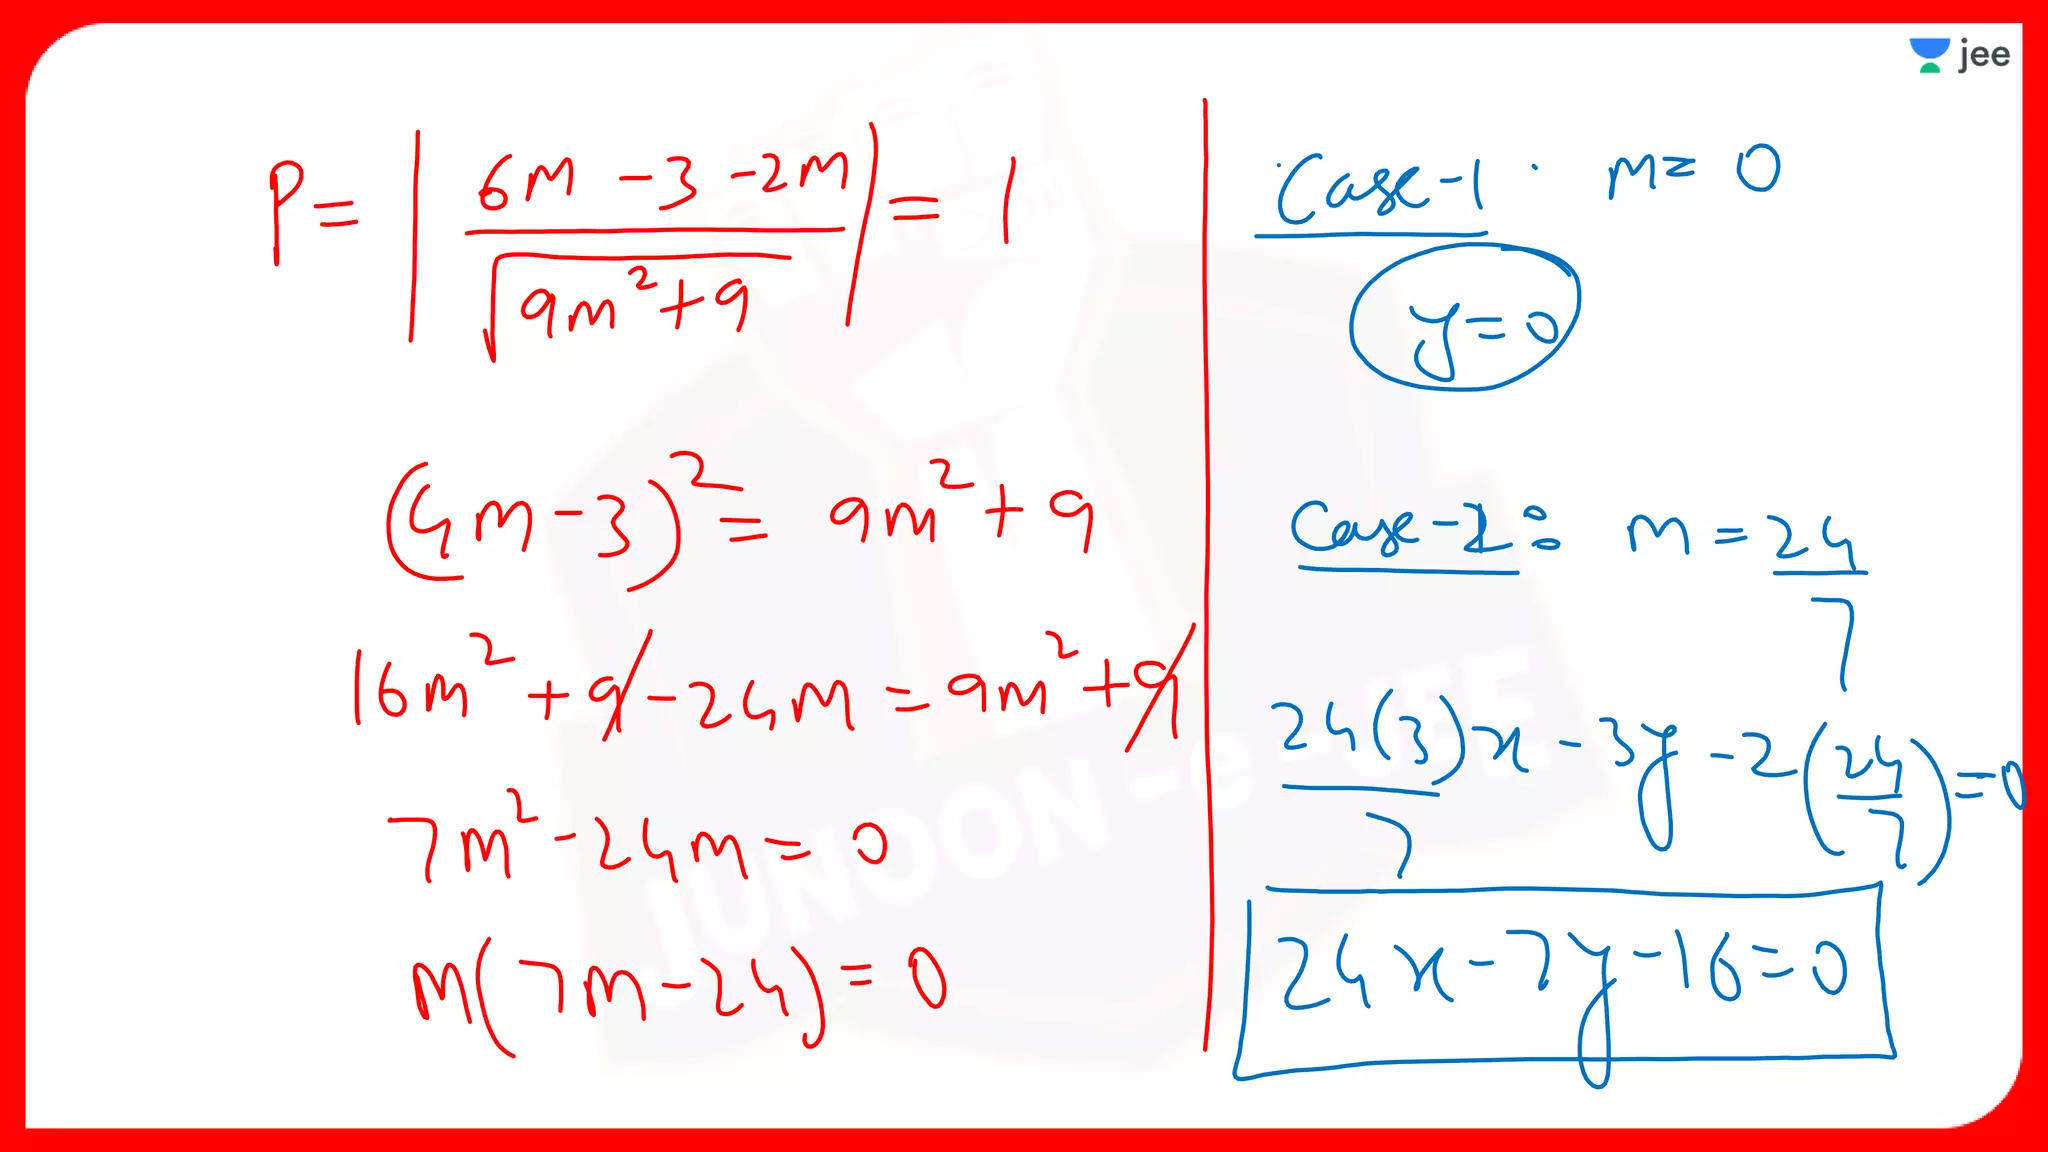 jee
P = | (6m - 3 - 2m) / √(9m² + 9) | = 1
(4m - 3)² = 9m² + 9
16m² + 9 - 24m = 9m² + 9
7m² - 24m = 0
m(7m - 24) = 0
Case-1 . m = 0
y = 0
Case-2 : m = 24/7
24(3)/7 x - 3y - 2(24/7) = 0
24x - 7y - 16 = 0
JUNOON-e-JEE